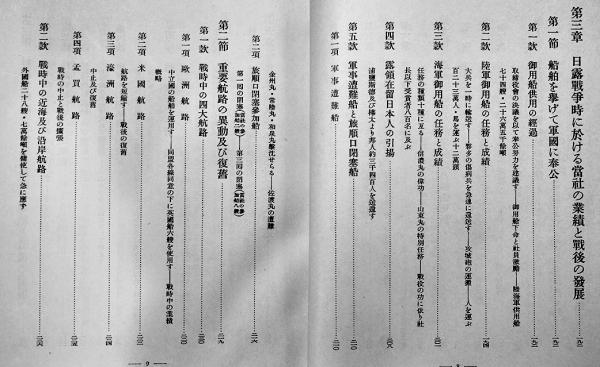 第三章　日露戰爭時に於ける當社の業績と戰後の發展
第一節　船舶を擧げて軍國に奉公
第一款　御用船供用の經過
取締役會の決議を以て奉公努力を建議す――御用船下命と社員激勵――陸海軍供用船
七十四艘・二十六萬五千餘噸
第二款　陸軍御用船の任務と成績
大兵を一時に輸送す――夥多の傷病兵を急速に還送す――攻城砲の運搬――人を運ぶ
百二十三萬人・馬を運ぶ十二萬頭
第三款　海軍御用船の任務と成績
任務の種類十種に亙る――信濃丸の偉功――山東丸の特別任務――戰役の功に依り社
長以下受賞者八百名に及ぶ
第四款　露領在留日本人の引揚
浦鹽斯德及び樺太より邦人約三千四百人を送還す
第五款　軍事遭難船と旅順口閉塞船
第一項　軍事遭難船
金州丸・常陸丸・和泉丸擊沈せらる――佐渡丸の遭難
第二項　旅順口閉塞參加船
第二節　重要航路の異動及び復舊
第一款　戰時中の四大航路
第一項　歐洲航路
中立國の船舶を運用す――同盟各線同意の下に英國船六艘を使用す――戰時中の業績
槪略
第二項　米國航路
航路を短縮す――戰後の復舊
第三項　濠洲航路
中止及び復舊
第四項　孟買航路
戰時の中止と戰後の擴張
第二款　戰時中の近海及び沿岸航路
外國船二十八艘・七萬餘噸を傭使して急に應ず
― 9 ―